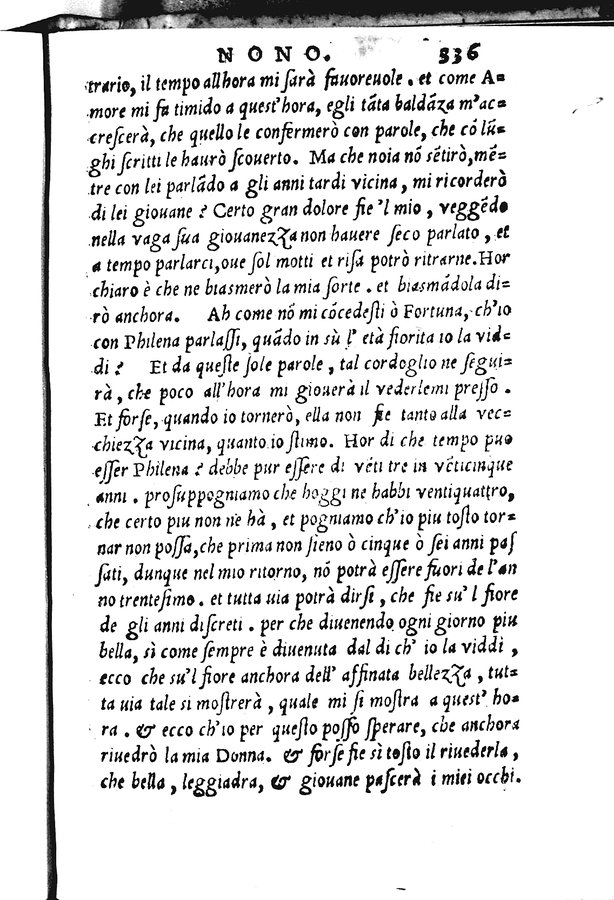 NONO. 336
trario, il tempo allhora mi sarà fauoreuole. et come A=
more mi fa timido a quest'hora, egli tãta baldãza m'ac=
crescerà, che quello le confermerò con parole, che cõ lũ=
ghi scritti le haurò scouerto. Ma che noia nõ sẽtirò, mẽ=
tre con lei parlãdo a gli anni tardi vicina, mi ricorderò
di lei giouane? Certo gran dolore fie 'l mio, veggẽdo
nella vaga sua giouanezza non hauere seco parlato, et
a tempo parlarci, oue sol motti et risa potrò ritrarne. Hor
chiaro è che ne biasmerò la mia sorte. et biasmãdola di=
rò anchora. Ah come nõ mi cõcedesti ò Fortuna, ch'io
con Philena parlassi, quãdo in sù l' età fiorita io la vid=
di? Et da queste sole parole, tal cordoglio ne segui=
rà, che poco all'hora mi giouerà il vederlemi presso.
Et forse, quando io tornerò, ella non fie tanto alla vec=
chiezza vicina, quanto io stimo. Hor di che tempo puo
esser Philena? debbe pur essere di vẽti tre in vẽticinque
anni. prosuppogniamo che hoggi ne habbi ventiquattro,
che certo piu non ne hà, et pogniamo ch'io piu tosto tor=
nar non possa, che prima non sieno ò cinque ò sei anni pas
sati, dunque nel mio ritorno, nõ potrà essere fuori de l'an
no trentesimo. et tutta uia potrà dirsi, che fie su' l fiore
de gli anni discreti. per che diuenendo ogni giorno piu
bella, sì come sempre è diuenuta dal dì ch' io la viddi,
ecco che su'l fiore anchora dell' affinata bellezza, tut=
ta uia tale si mostrerà, quale mi si mostra a quest' ho=
ra. & ecco ch'io per questo posso sperare, che anchora
riuedrò la mia Donna. & forse fie sì tosto il riuederla,
che bella, leggiadra, & giouane pascerà i miei occhi.